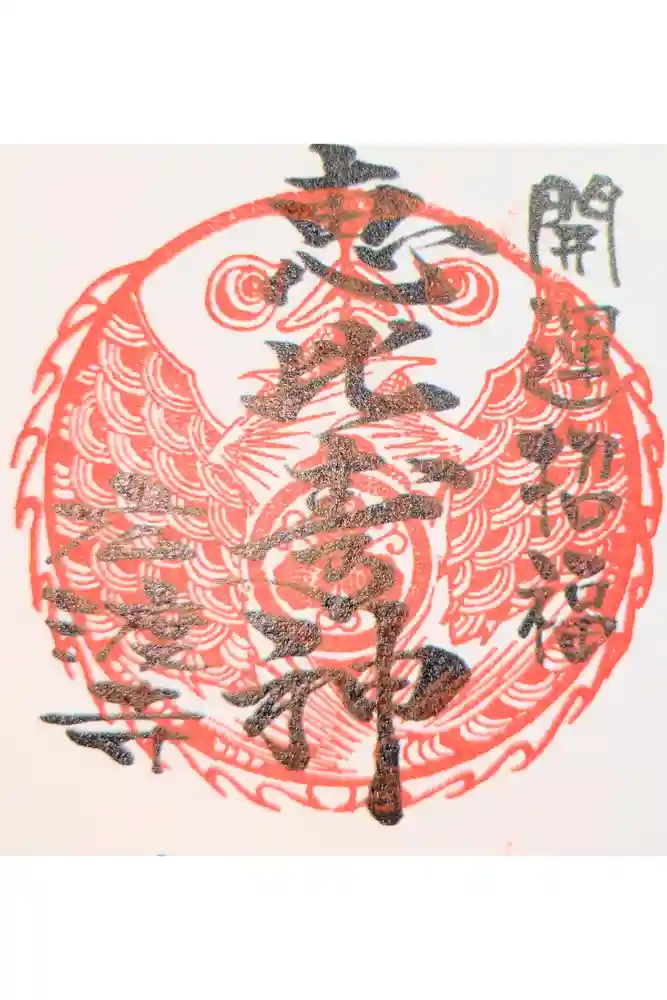 開運招福
恵比寿神
寺